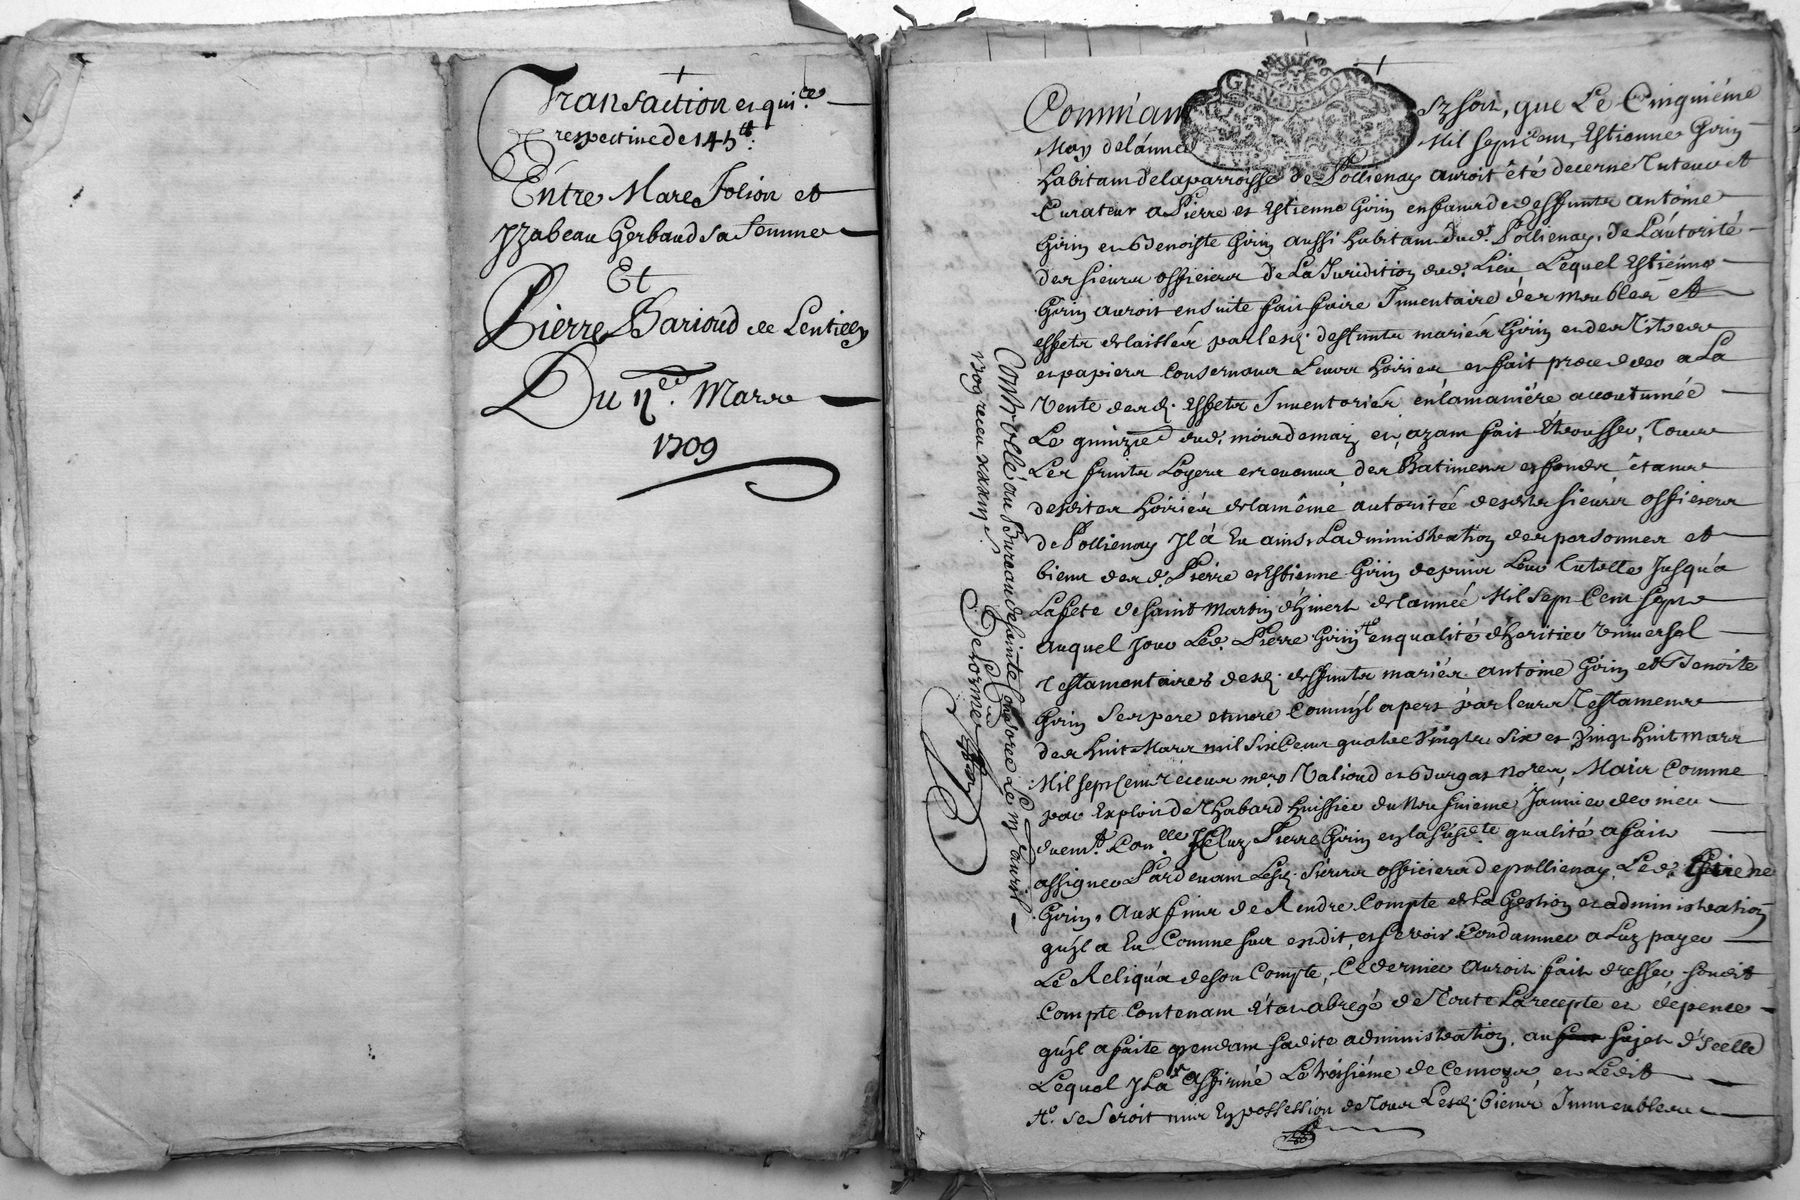 Transaction et quit.ce
respective de 145 tt.
Entre Marc Jolion et
Yzabeau Gerbaud sa femme
Et
Pierre Barioud de Lentilly
Du 11e. Mars
1709
GEN. DE LYON
Comm'ain sy soit, que Le Cinquiéme
May de lánnée Mil sept cent, Estienne Girin
habitant de la parroisse de Pollienay auroit êté decerné Tuteur et
Curateur a Pierre et Estienne Girin enfans de deffunts antoine
Girin et Benoiste Girin aussi habitans dud. Pollienay, de L'áutorité
des sieurs officiers de La Juridition dud. Lieu, Lequel Estienne
Girin auroit ensuite fait faire Inventaire des meubles et
effets delaissés par lesd. deffunts mariés Girin et des Titres
et papiers consernans Leurs hoiries et fait proceder a La
Vente desd. Effets Inventoriés en la maniére accoutumée
Le quinzie. dud. mois de may, et, ayant fait Etrousser, Tous
Les fruits Loyers et revenus des Batimens et fonds êtans
desdites hoiries de la même autoritée desdits sieurs officiers
de Pollienay Jl á Eu ainsi L'administration des personnes et
biens desd. Pierre et Estienne Girin depuis Leur Tutelle Jusqu'á
La fete de saint Martin d'hivert de l'année Mil sept Cent sept
auquel jour Led. Pierre Girin en qualité d'heritier Universel
Testamentaires desd. deffunts mariés antoine Girin et Benoite
Girin ses pere et mere comm'jl apert par leurs Testamens
des huit Mars mil six Cens quatre Vingts six et Vingt huit mars
Mil sept Cent receus mes. Valioud et Burgat Nores, Mais comme
par Exploit de Thabard huissier du Neufvieme Janvier dernier
duemt. Con.llé Jceluy Pierre Girin en la susd.te qualité a fait
assigner Pardevant Lesd. sieurs officiers de pollienay, Led. Etiene
Girin, Aux fins de Rendre Compte de la Gestion et administration
qu'jl a Eu Comme sus est dit, et se voir Condamner a Luy payer
Le Reliqúa de son Compte, Ce dernier auroit fait dresser soudit
Compte Contenant Etat abregé de Toute La recepte et dépence
qu'jl a faite pendant sadite administration, au sujet d'Icelle
Lequel Jl a affirmé Le troisiéme de Ce moys et Ledit
se seroit mis En possession de Tous Lesd. biens Immeubles
Controllé au Bureau de sainte Consorce Le m.e auril
1709 receu xxxiij s.
Delorme